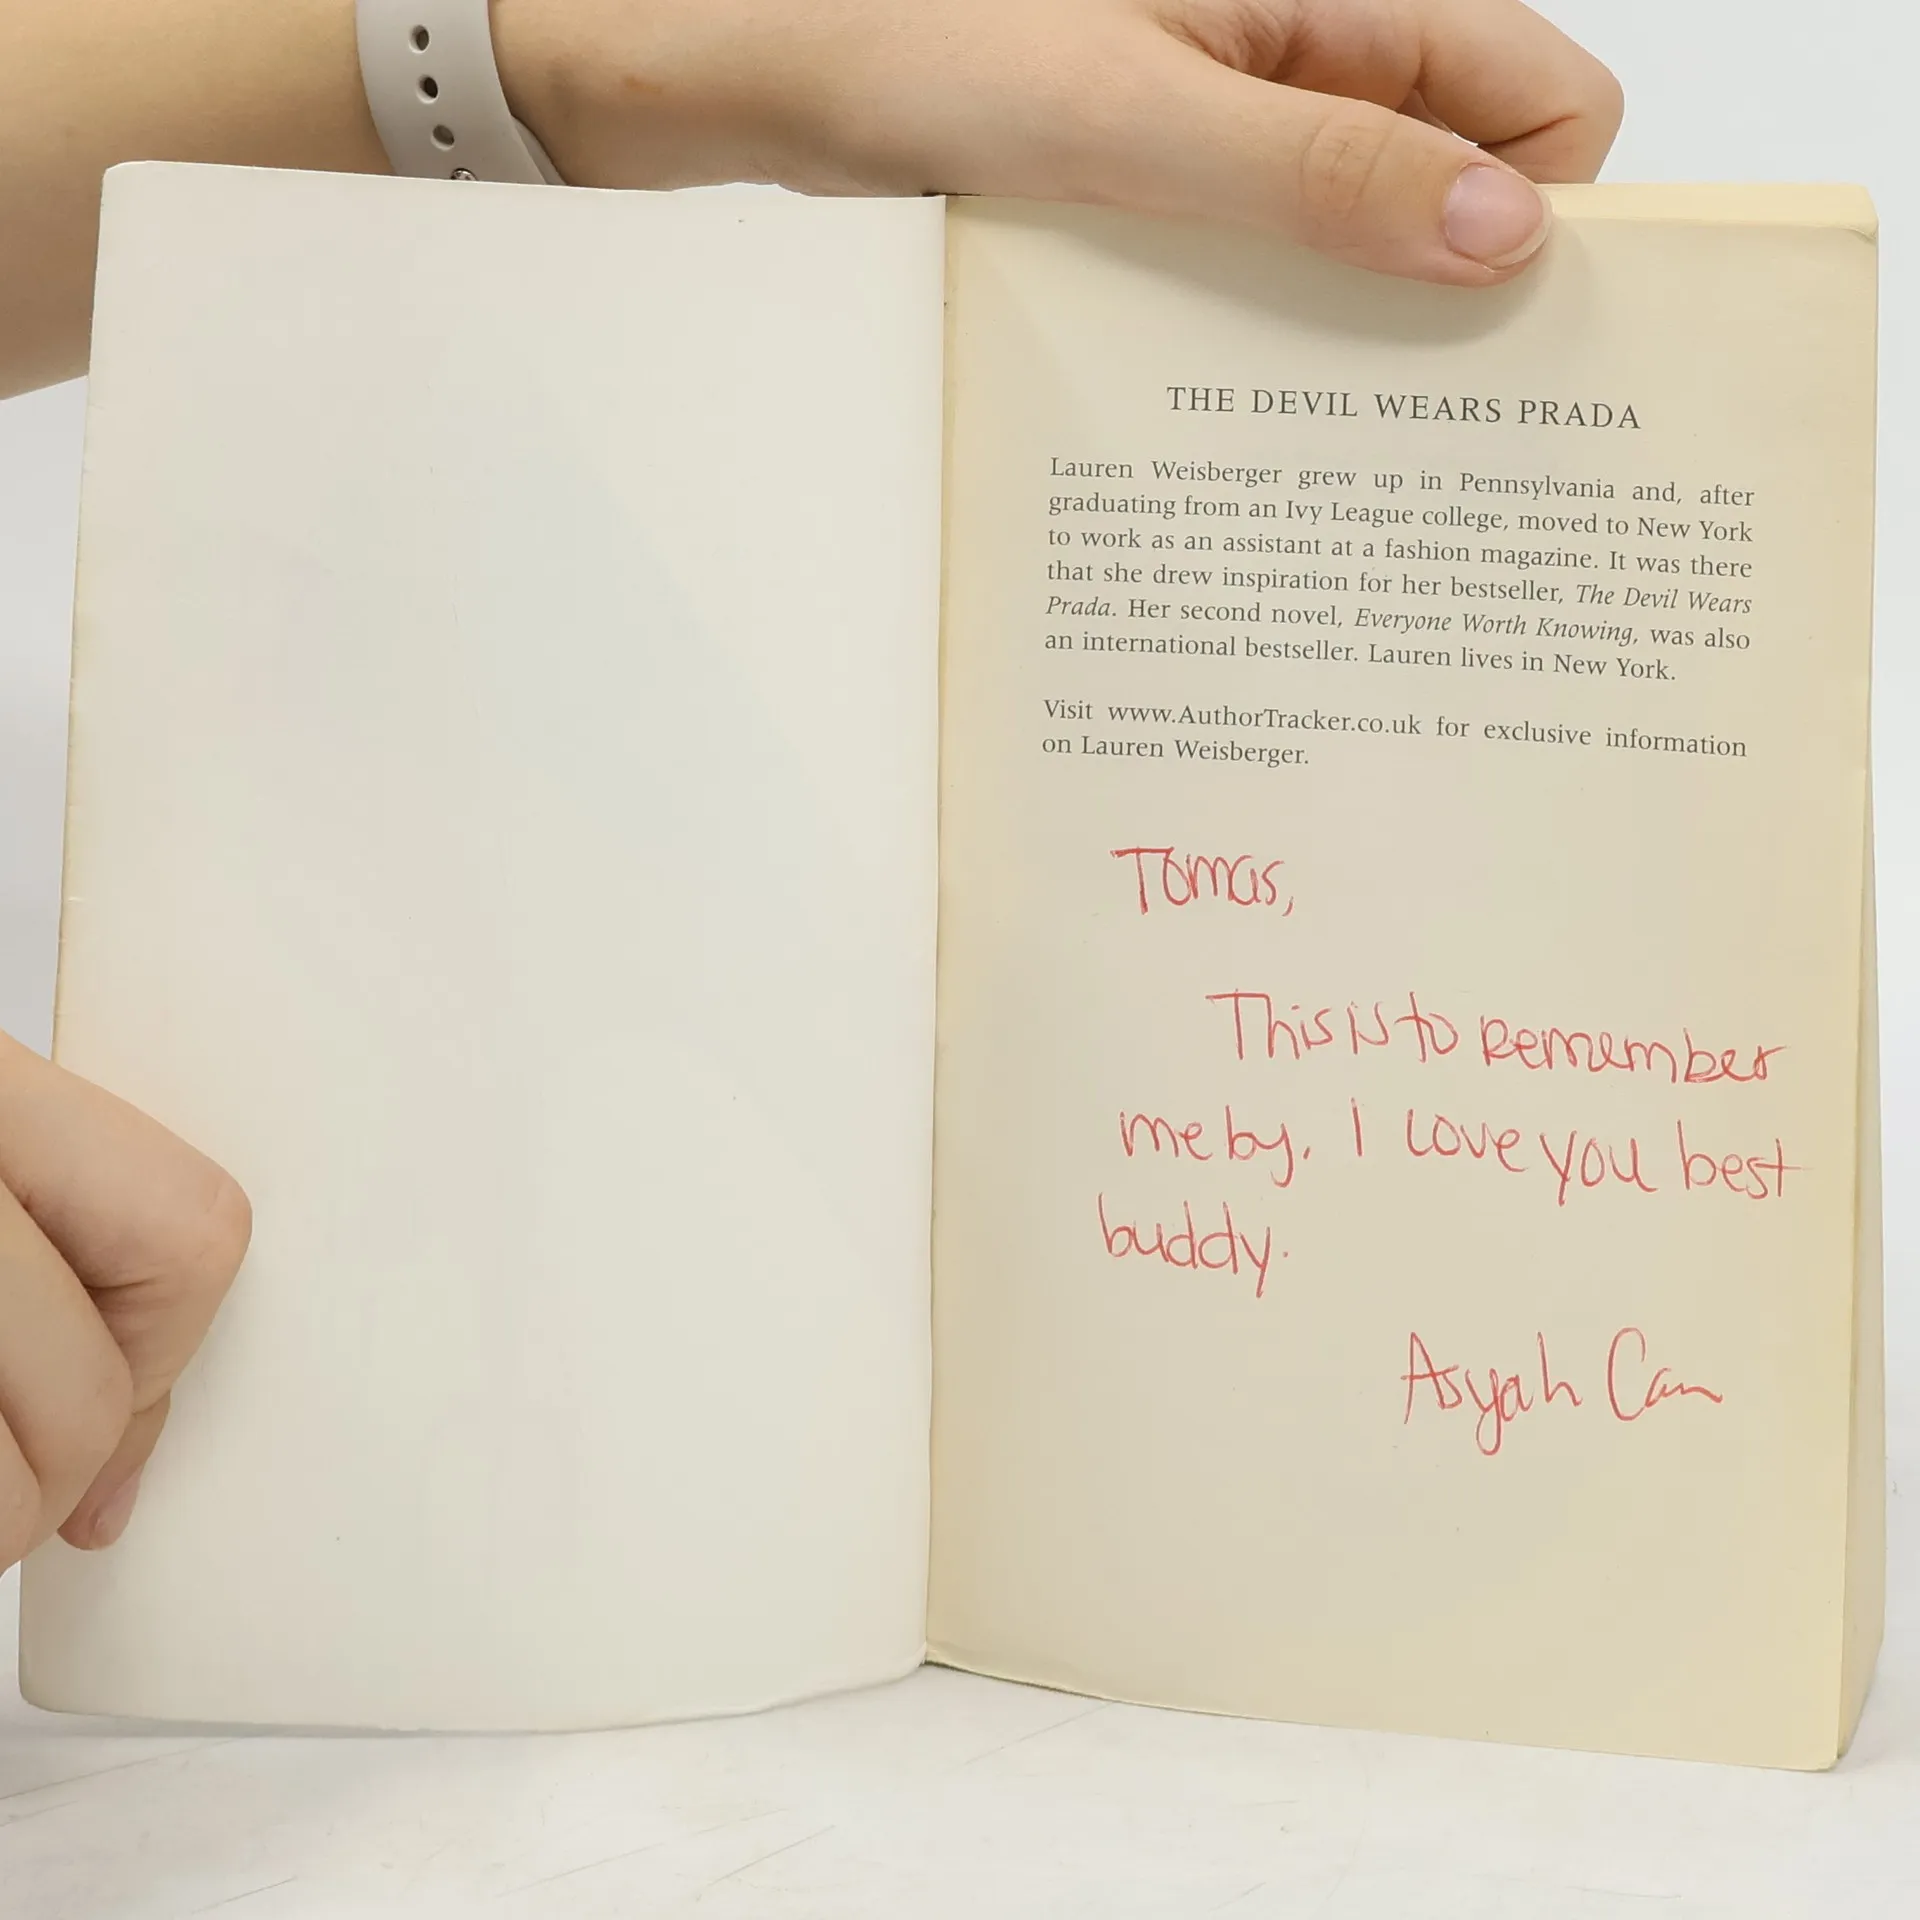 THE DEVIL WEARS PRADA
Lauren Weisberger grew up in Pennsylvania and, after
graduating from an Ivy League college, moved to New York
to work as an assistant at a fashion magazine. It was there
that she drew inspiration for her bestseller, The Devil Wears
Prada. Her second novel, Everyone Worth Knowing, was also
an international bestseller. Lauren lives in New York.
Visit www.AuthorTracker.co.uk for exclusive information
on Lauren Weisberger.
Tomas,
This is to remember
me by. I love you best
buddy.
Asyah Can